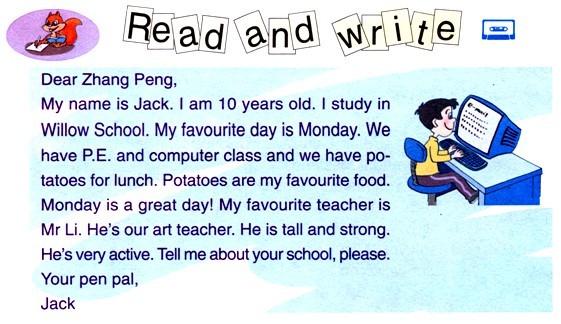 Read and write
Dear Zhang Peng,
My name is Jack. I am 10 years old. I study in
Willow School. My favourite day is Monday. We
have P.E. and computer class and we have po-
tatoes for lunch. Potatoes are my favourite food.
Monday is a great day! My favourite teacher is
Mr Li. He's our art teacher. He is tall and strong.
He's very active. Tell me about your school, please.
Your pen pal,
Jack